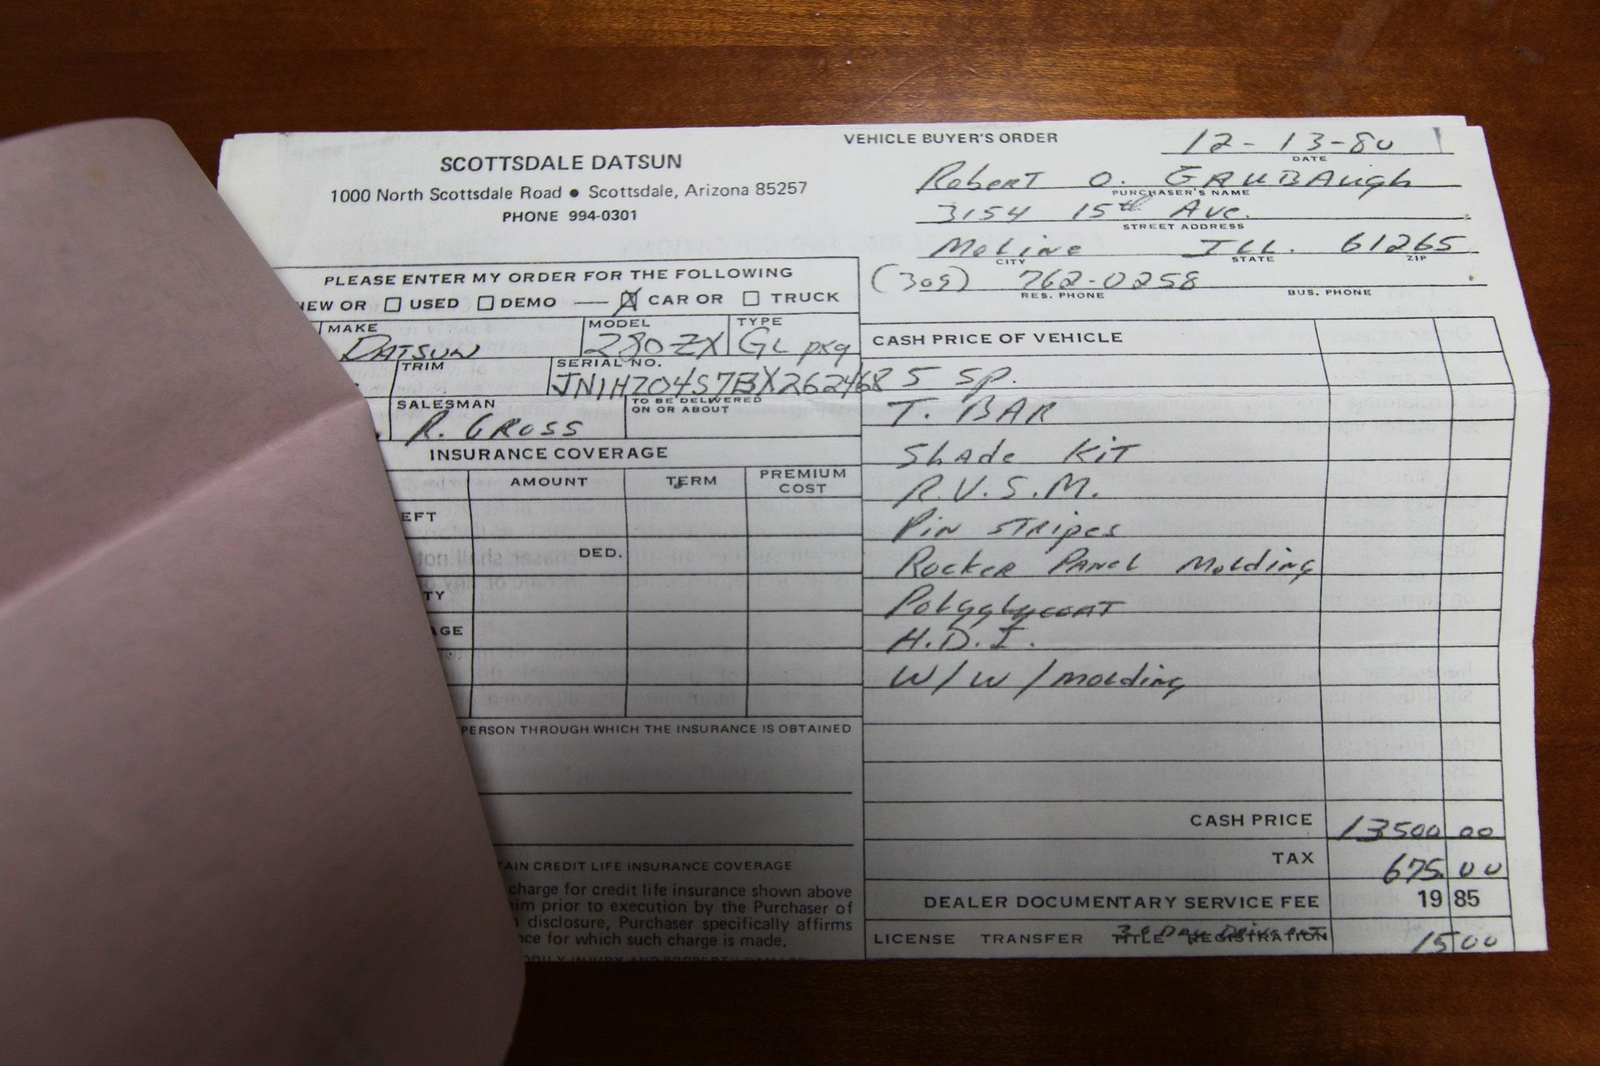 VEHICLE BUYER'S ORDER
12-13-80
DATE
SCOTTSDALE DATSUN
1000 North Scottsdale Road • Scottsdale, Arizona 85257
PHONE 994-0301
Robert O. GAUBAugh
PURCHASER'S NAME
3154 15th Ave.
STREET ADDRESS
Moline ILL. 61265
CITY STATE ZIP
(309) 762-0258
RES. PHONE BUS. PHONE
PLEASE ENTER MY ORDER FOR THE FOLLOWING
EW OR USED DEMO CAR OR TRUCK
MAKE MODEL TYPE
DATSUN 280ZX GL pkg
TRIM SERIAL NO.
JN1HZ04S7BX262468
SALESMAN TO BE DELIVERED ON OR ABOUT
R. GROSS
INSURANCE COVERAGE
AMOUNT TERM PREMIUM COST
EFT
DED.
TY
AGE
PERSON THROUGH WHICH THE INSURANCE IS OBTAINED
TAIN CREDIT LIFE INSURANCE COVERAGE
charge for credit life insurance shown above
im prior to execution by the Purchaser of
disclosure, Purchaser specifically affirms
nce for which such charge is made.
CASH PRICE OF VEHICLE
5 SP.
T. BAR
Shade KiT
R.V.S.M.
Pin STRipes
Rocker PANel Molding
Polyglycoat
H.D.I.
W/W/molding
CASH PRICE 13500 00
TAX 675.00
DEALER DOCUMENTARY SERVICE FEE 19 85
LICENSE TRANSFER TITLE REGISTRATION 15 00